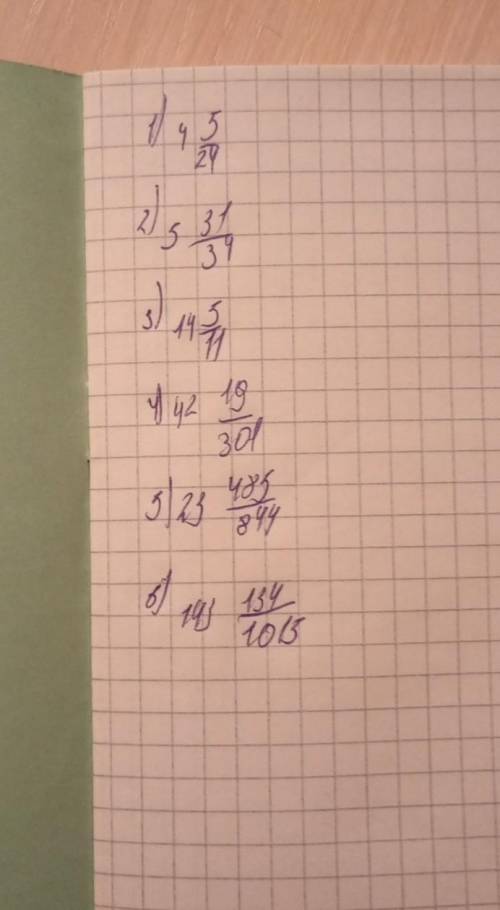 1) 4 5/24
2) 5 31/34
3) 14 5/11
4) 42 19/301
5) 23 485/844
6) 143 134/1015